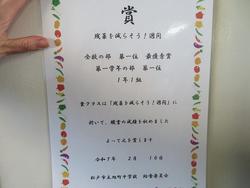 賞
残菜を減らそう！週間
全校の部　第一位　最優秀賞
第一学年の部　第一位
1年1組
貴クラスは「残菜を減らそう！週間」に
於いて、頭書の成績を収めました
よってこれを賞します
令和7年　2月　10日
松戸市立旭町中学校　給食委員会